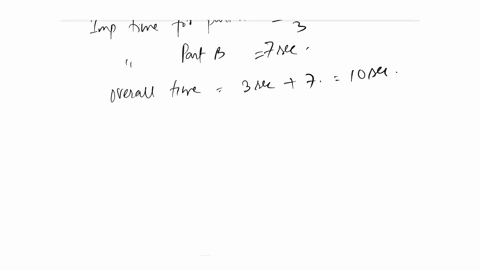 Imp time for = 3
" Part B = 7 sec.
overall time = 3 sec + 7. = 10 sec.